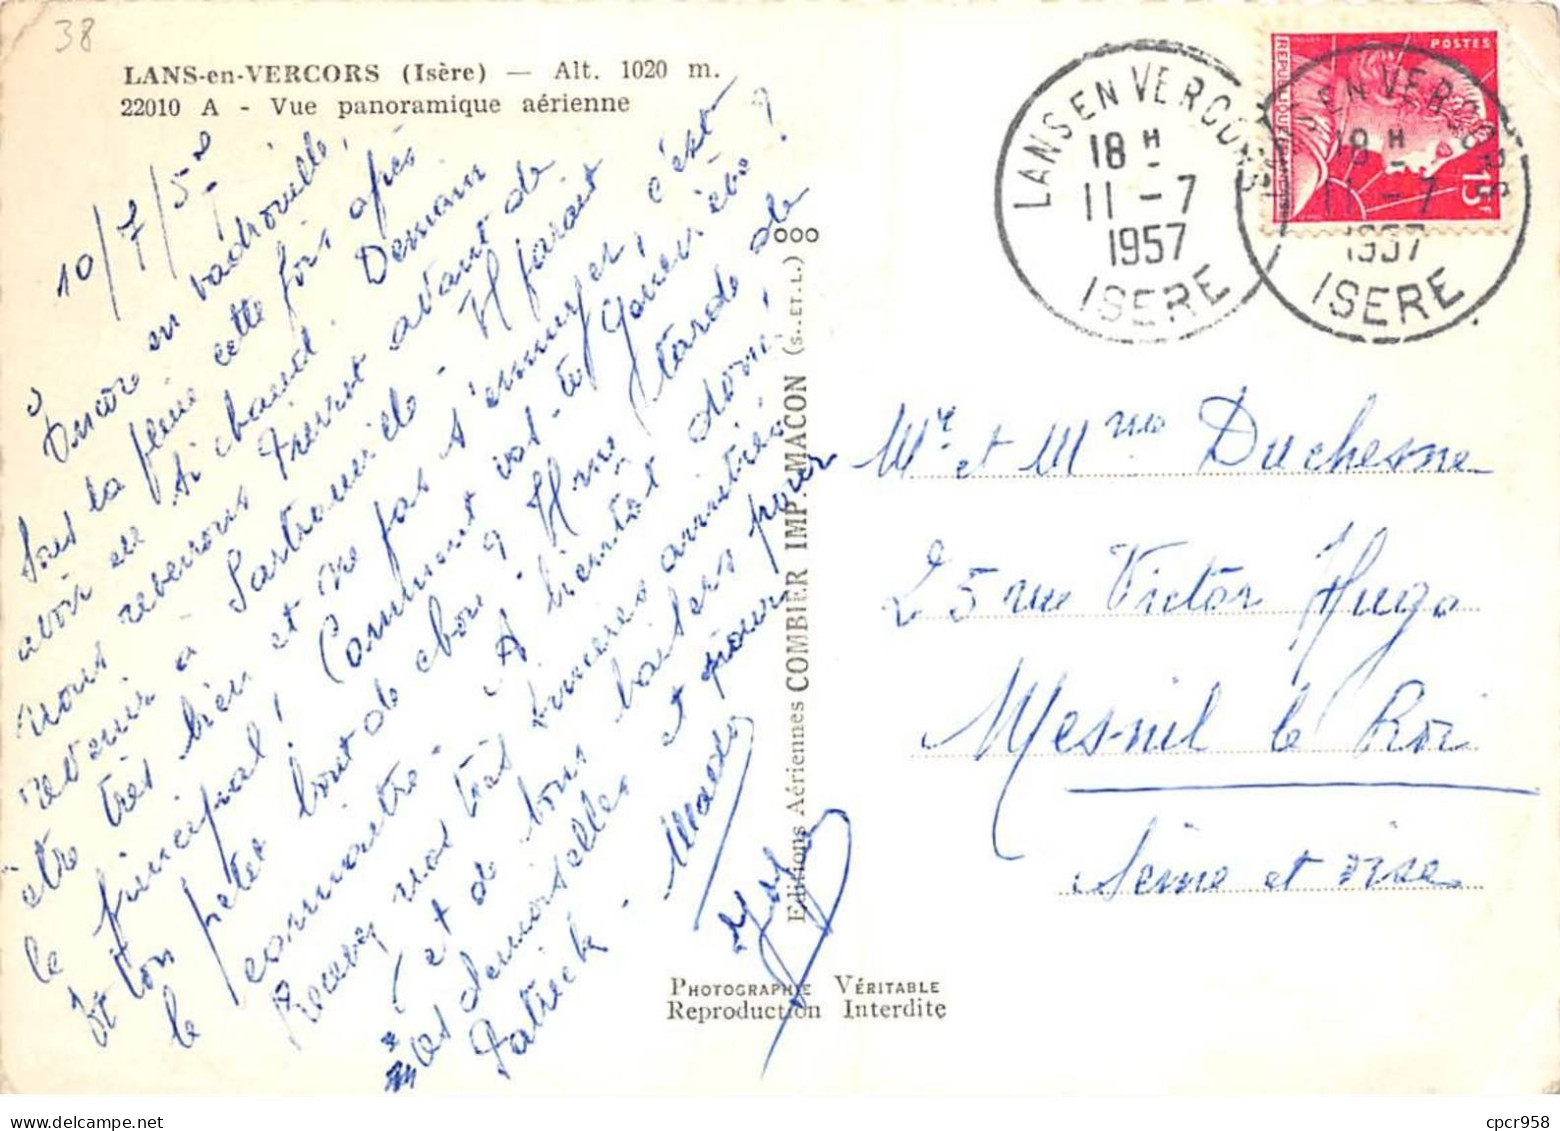 38
LANS-en-VERCORS (Isère) — Alt. 1020 m.
22010 A - Vue panoramique aérienne
10/7/57
Encore en vadrouille,
sous la pluie cette fois après
avoir eu si chaud. Demain
nous reverrons Pierret avant de
revenir à Sartrouville - Il parait
être très bien et ne pas s'ennuyer, c'est
le principal! Comment vas-tu
Et ton petit bout de chou ? Hme tarde de
le connaitre - A bientôt donc!
Recevez nos très sincères amitiés
(et de bons baisers pour
les demoiselles et pour
Patrick - Mado
Editions Aériennes COMBIER IMP. MACON (S.. ET. L.) OOO
PHOTOGRAPHIE VÉRITABLE
Reproduction Interdite
LANS EN VERCORS
18 H
11 - 7
1957
ISERE
LANS EN VERCORS
18 H
11 - 7
1957
ISERE
POSTES
REPUBLIQUE FRANCAISE
15F
Mr et Mme Duchesne
25 rue Victor Hugo
Mesnil le Roi
Seine et oise
cpcr958